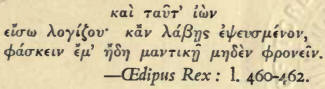 καὶ ταῦτ' ἰὼν
εἴσω λογίζου· κἂν λάβῃς ἐψευσμένον,
φάσκειν ἔμ' ἤδη μαντικῇ μηδὲν φρονεῖν.
—Œdipus Rex: l. 460-462.